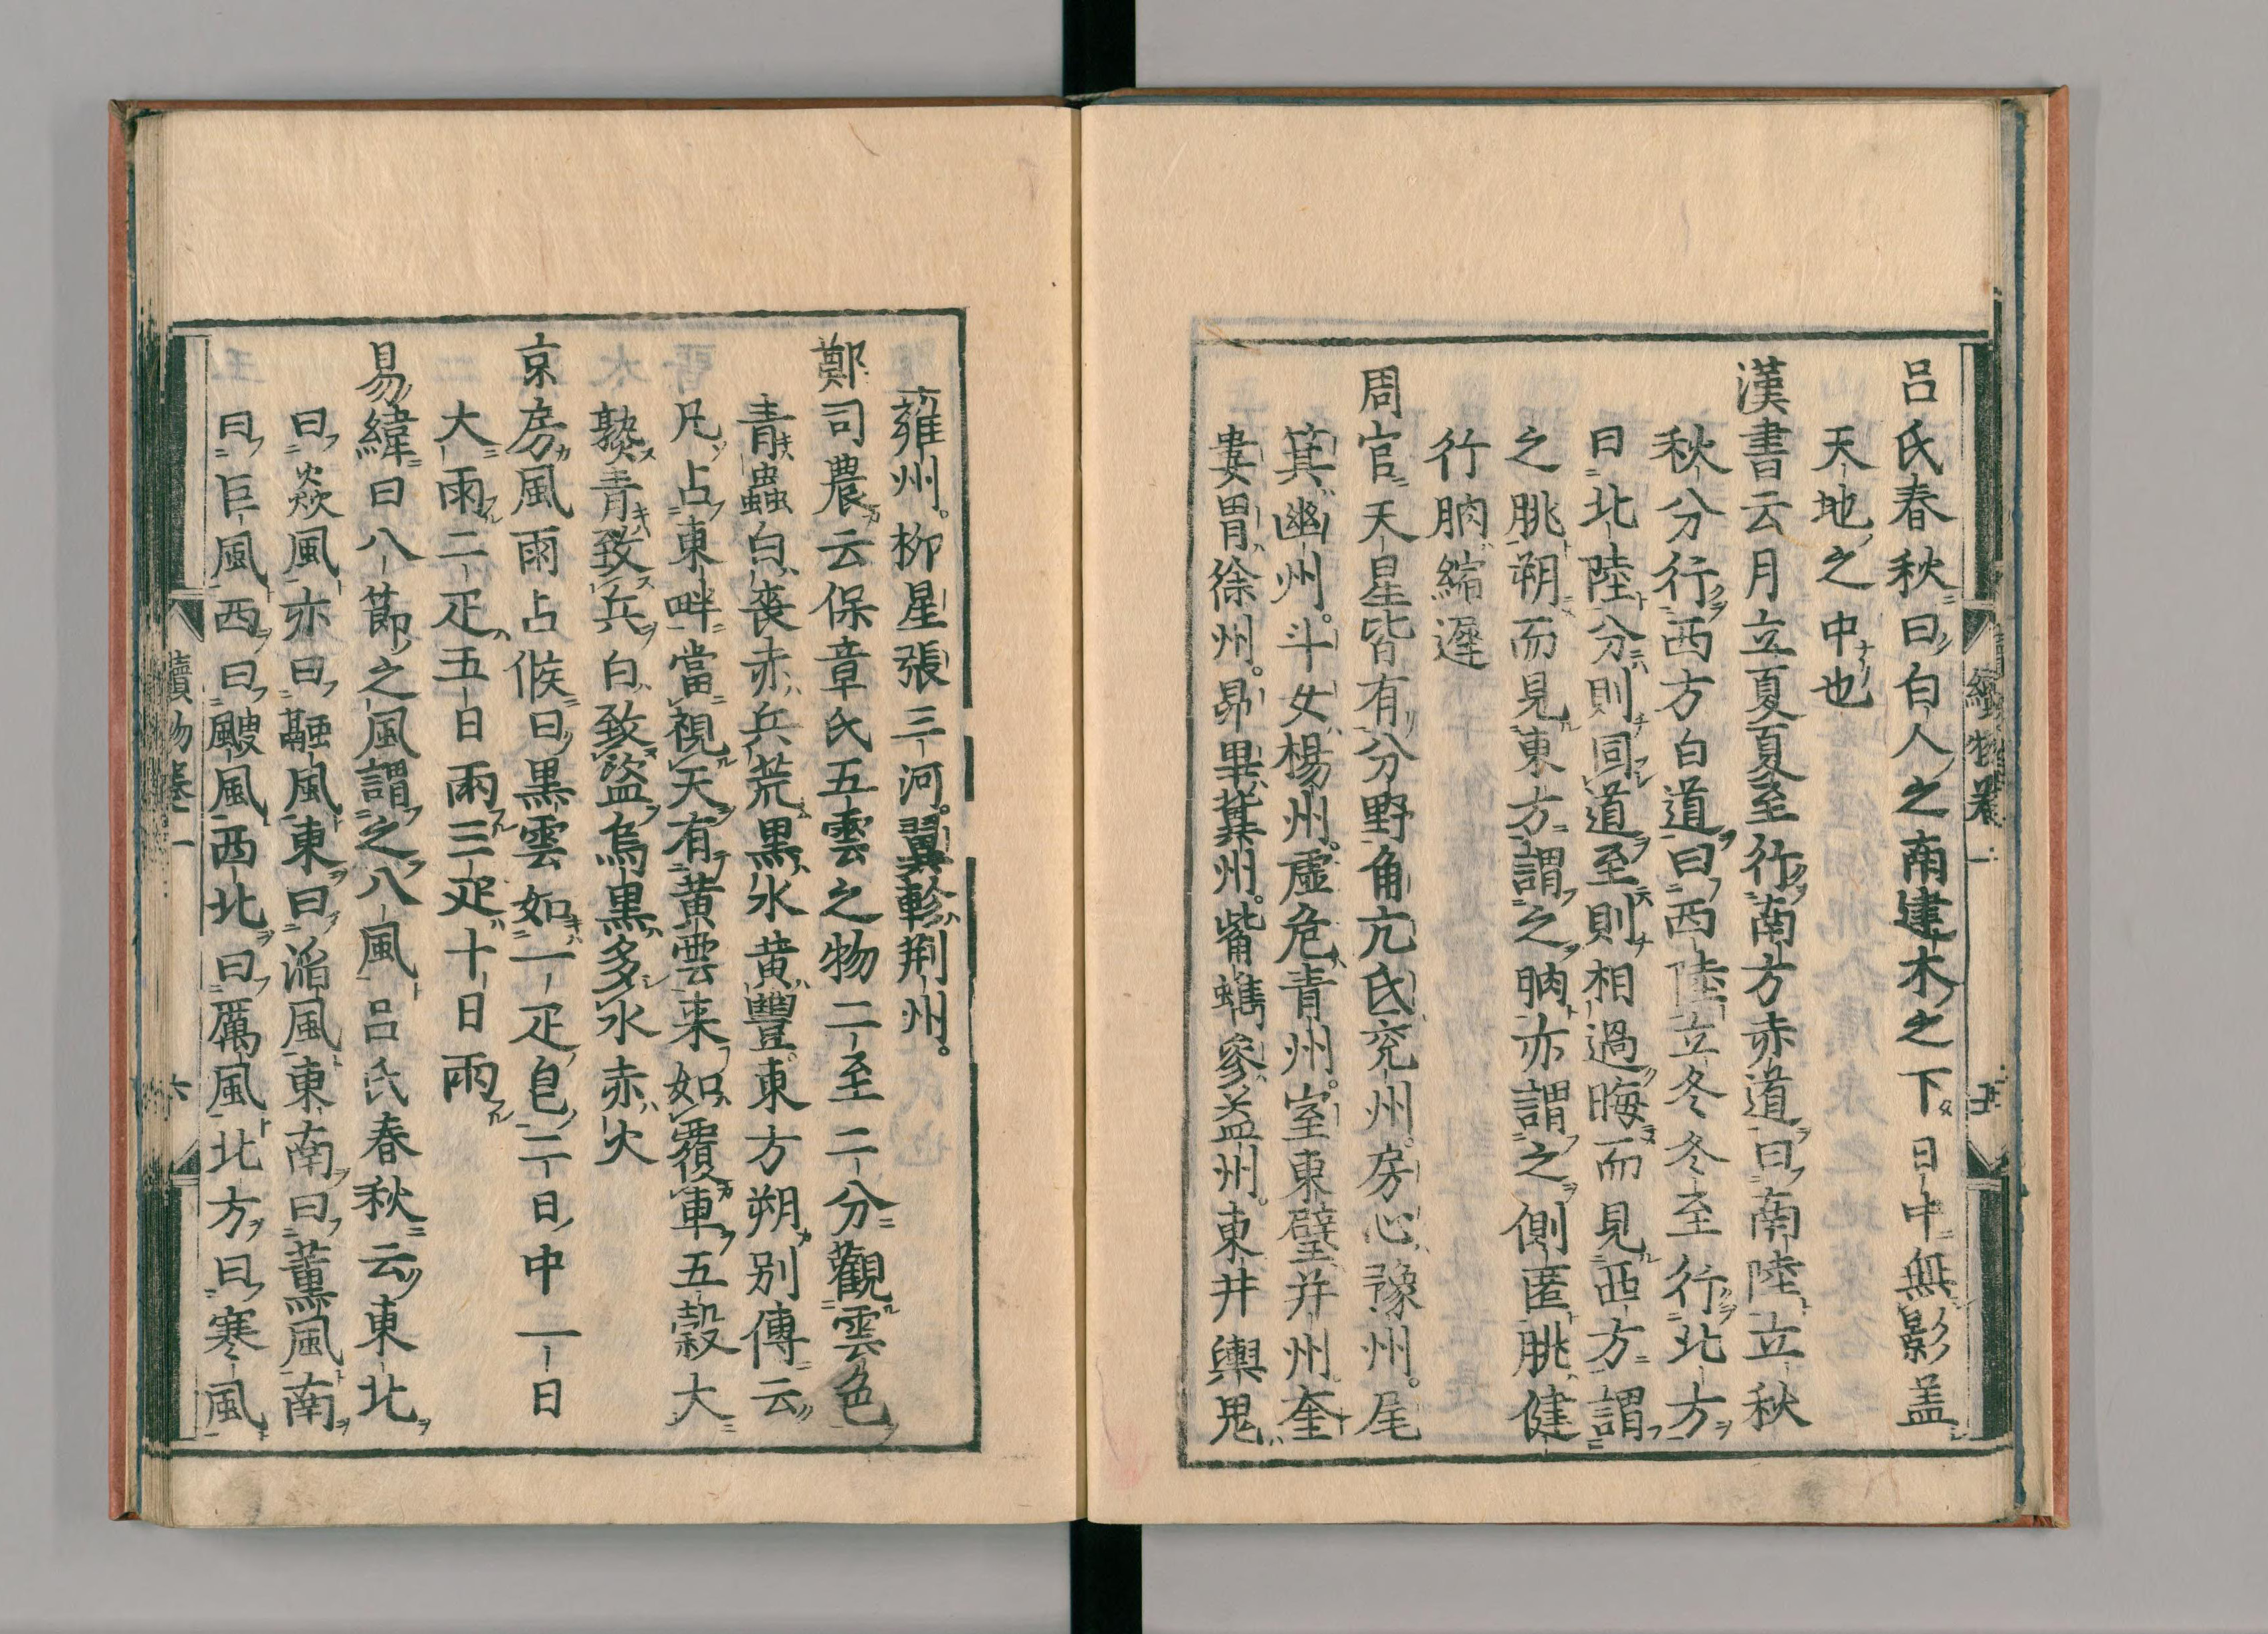 呂氏春秋曰白人之南建木之下日中無影盖
天地之中也
漢書云月立夏夏至行南方赤道曰南陸立秋
秋分行西方白道曰西陸立冬冬至行北方
曰北陸分則同道至則相過晦而見西方謂
之朓朔而見東方謂之朒亦謂之側匿朓健
行朒縮遲
周官天星皆有分野角亢氐兖州房心豫州。尾
箕幽州。斗女楊州。虛危青州。室東壁并州奎
婁胃徐州。昴畢冀州。觜蠵參益州。東井輿鬼
雍州。柳星張三河。翼軫荆州。
鄭司農云保章氏五雲之物二至二分觀雲色
青蟲白喪赤兵荒黒水黄豐東方朔别傳云
凡占東畔當視天有黄雲来如覆車五穀大
熟青致兵白致盜烏黒多水赤火
京房風雨占候曰黒雲如一疋皀二日中一日
大雨二疋五日雨三疋十日雨
易緯曰八節之風謂之八風吕氏春秋云東北
曰焱風亦曰融風東曰滔風東南曰薫風南
曰巨風西曰飂風西北曰厲風北方曰寒風
續物卷一
六